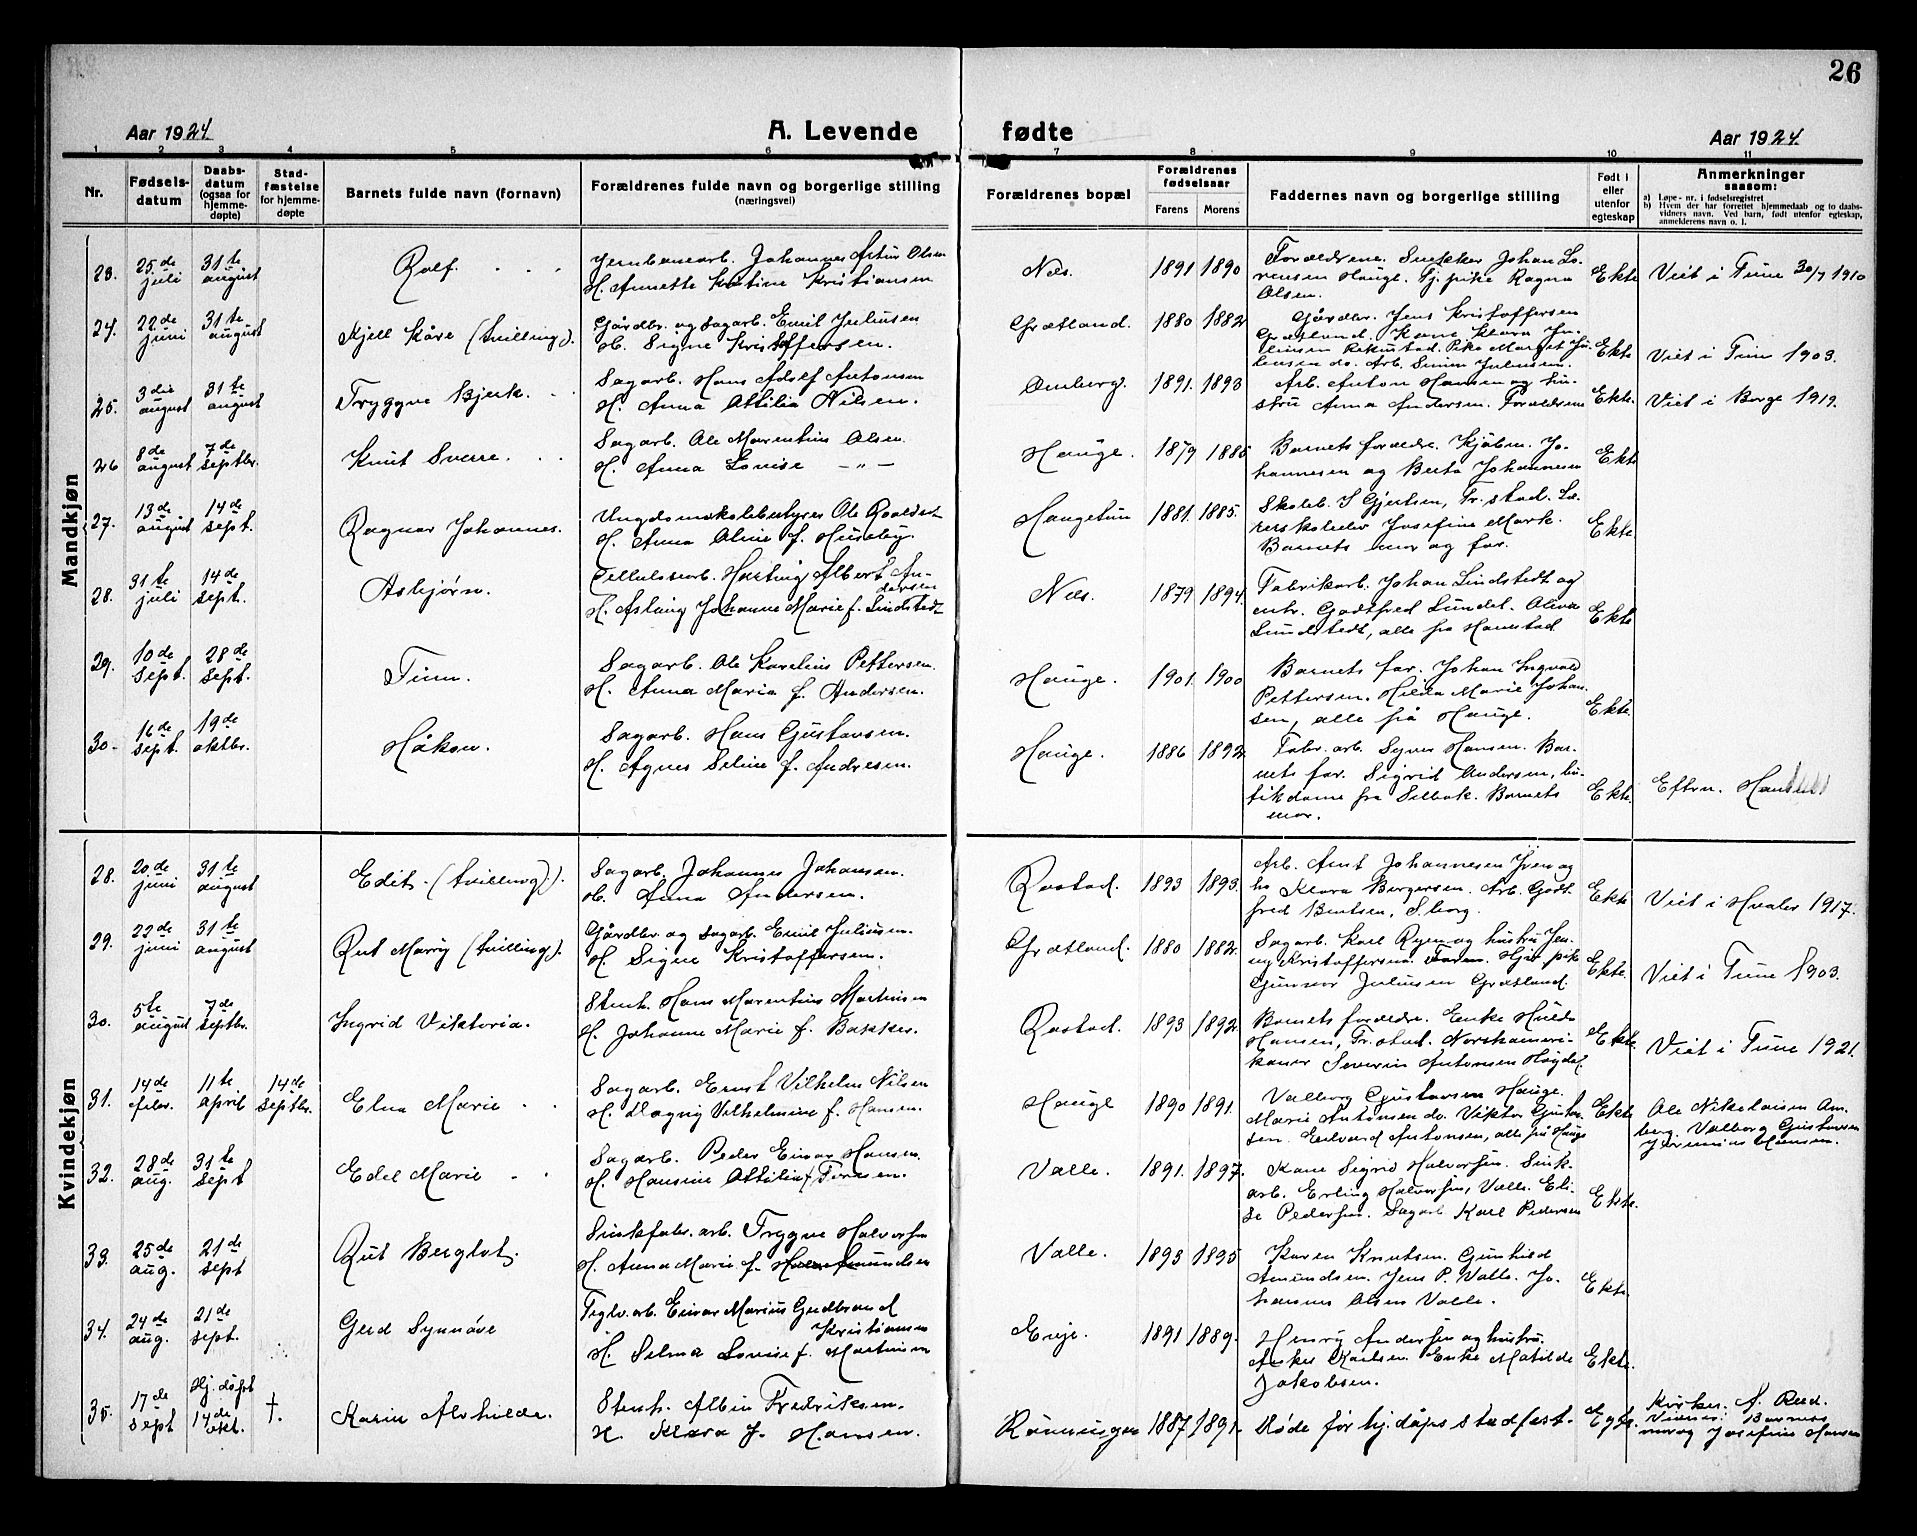 26
Aar 1924.
A. Levende fødte
Aar 1924.
1 2 3 4 5 6 7 8 9 10 11
Nr.
Fødsels-
datum
Daabs-
datum
(ogsaa for
hjemme-
døpte)
Stad-
fæstelse
for hjemme-
døpte
Barnets fulde navn (fornavn)
Forældrenes fulde navn og borgerlige stilling
(næringsvei)
Forældrenes bopæl
Forældrenes
fødselsaar
Farens Morens
Faddernes navn og borgerlige stilling
Født i
eller
utenfor
egteskap
Anmerkninger
saasom:
a) Løpe-nr. i fødselsregistret
b) Hvem der har forrettet hjemmedaab og to daabs-
vidners navn. Ved barn, født utenfor egteskap,
anmelderens navn o. l.
Mandkjøn
23. 25de juli 31te august
Rolf.
Jernbanearb. Johannes Artur Olsen
H. Annette Kristine Kristiansen
Nes. 1891 1890
Forældrene. Snekker Johan Lo-
rensen Hauge. Tj. pike Ragna
Olsen.
Ekte
Viet i Tune 30/7 1910
24. 22de juni 31te august
Kjell Kåre (tvilling).
Gårdbr. og sagarb. Emil Juliusen
H. Signe Kristoffersen.
Grætland. 1880 1882
Gårdbr. Jens Kristoffersen
Grætland. Kone Klara Ju-
liussen
Ekte
Viet i Tune 1903.
25. 3die august 31te august
Tryggve Bjerk.
Sagarb. Hans Adolf Antonsen
H. Anna Attilia Nilsen.
Omberg. 1891. 1893
Arb. Anton Hansen og hu-
stru Anna Andersen. Forældrene
Ekte.
Viet i Borge 1919.
26 8de august 7de septbr.
Knut Sverre.
Sagarb. Ole Marentius Olsen.
H. Anna Lovise —„—
Hauge. 1879 1885
Barnets foreldre. Kjøbm. Jo-
hannesen og Berta Johannesen
Ekte
27. 13de august 14de sept.
Ragnar Johannes.
Ungdomskolebestyrer Ole Roaldset
H. Anna Oline f. Huseby.
Haugetun 1881. 1885.
Skoleb. S Gjertsen, Fr.stad. Læ-
rerskoleelev Josefine Mork.
Barnets mor og far.
Ekte.
28. 31te juli 14de sept.
Asbjørn.
Cellulosearb. Harting Albert An-
dersen
H. Aslaug Johanne Marie f. Lindstedt
Nes. 1879 1894.
Fabrikarb. Johan Lindstedt og
entr. Godtfred Lundet. Oliva
Lundstedt, alle fra Hanestad
Ekte
29. 10de sept. 28de sept.
Finn.
Sagarb. Ole Karelius Pettersen.
H. Anna Maria f. Andersen.
Hauge. 1901. 1900
Barnets far. Johan Ingvald
Pettersen. Hilda Marie Johan-
sen, alle frå Hauge.
Ekte.
30. 16de sept. 19de oktbr.
Håkon.
Sagarb. Hans Gustavsen.
H. Agnes Seline f. Andresen.
Hauge. 1886 1892.
Fabr. arb. Syver Hansen. Bar-
nets far. Sigrid Andersen, bu-
tikdame fra Selbak. Barnets
mor.
Ekte.
Eftrn.
Kvindekjøn
28. 20de juni 31te august
Edit. (tvilling).
Sagarb. Johannes Johansen.
H. Anna Andersen.
Rostad. 1893 1893.
Arb. Arnt Johannesen og
Klara Bergersen. Arb. Godt-
fred Berntsen, S.borg.
Ekte
Viet i Hvaler 1917.
29. 22de juni 31te august
Rut Marry (tvilling).
Gårdbr og sagarb. Emil Juliusen.
H. Signe Kristoffersen.
Grætland. 1880 1882.
Sagarb. Karl Ryen og hustru Jen-
ny Kristoffersen. Faren. Hjp. pike
Gunvor Juliusen Grætland.
Ekte.
Viet i Tune 1903.
30. 5te august 7de septbr.
Ingrid Viktoria.
Stenh. Hans Marentius Martinsen
H. Johanne Marie f. Bakke.
Rostad. 1893 1892.
Barnets foreldre. Enke Hulda
Hansen, Fr.stad. Norskameri-
kaner Severin Antonsen Høgdal
Ekte.
Viet i Tune 1921.
31. 14de febr. 11te april 14de septbr.
Elna Marie
Sagarb. Ernst Vilhelm Nilsen
H. Magny Vilhelmine f. Hansen.
Hauge 1890 1891.
Valborg Gustavsen Hauge.
Marie Antonsen do. Viktor Gustav-
sen. Edvard Antonsen, alle frå Hauge
Ekte
Ole Nikolaisen Om-
berg. Valborg Gustavsen
Jeremias Hansen.
32. 28de aug. 31te sept
Edel Marie
Sagarb. Peder Einar Hansen.
H. Hansine Attilia f. Torsen.
Valle. 1891. 1897.
Kone Sigrid Halvorsen. Sink-
arb. Erling Halvorsen, Valle. Eli-
se Pedersen. Sagarb Karl Pedersen
Ekte.
33. 25de aug. 21de sept
Rut Bergliot.
Sinkfabr. arb. Trygve Halvorsen
H. Anna Marie f. Amundsen
Valle. 1893 1895
Karen Knutsen. Gunhild
Amundsen. Jens P. Valle. Jo-
hannes Olsen Valle.
Ekte.
34. 24de aug. 21de sept.
Gerd Synnøve
Teglv. arb. Einar Marius Gudbrand
Kristiansen
H. Selma Lovise f. Martinsen
Ereje. 1891 1889.
Henry Andersen og hustru.
Anker Karlsen. Enke Matilde
Jakobsen.
Ekte.
35. 17de sept Hj. døpt 14de okt. †.
Karin Alvhilde.
Stenh. Albin Fredriksen.
H. Klara f. Hansen.
Rønningen 1887 1891.
Døde før hj. dåps stadfest.
Egte.
Kirkes. A. Rød.
Vidner: Barnets
mor og Josefine Hansen